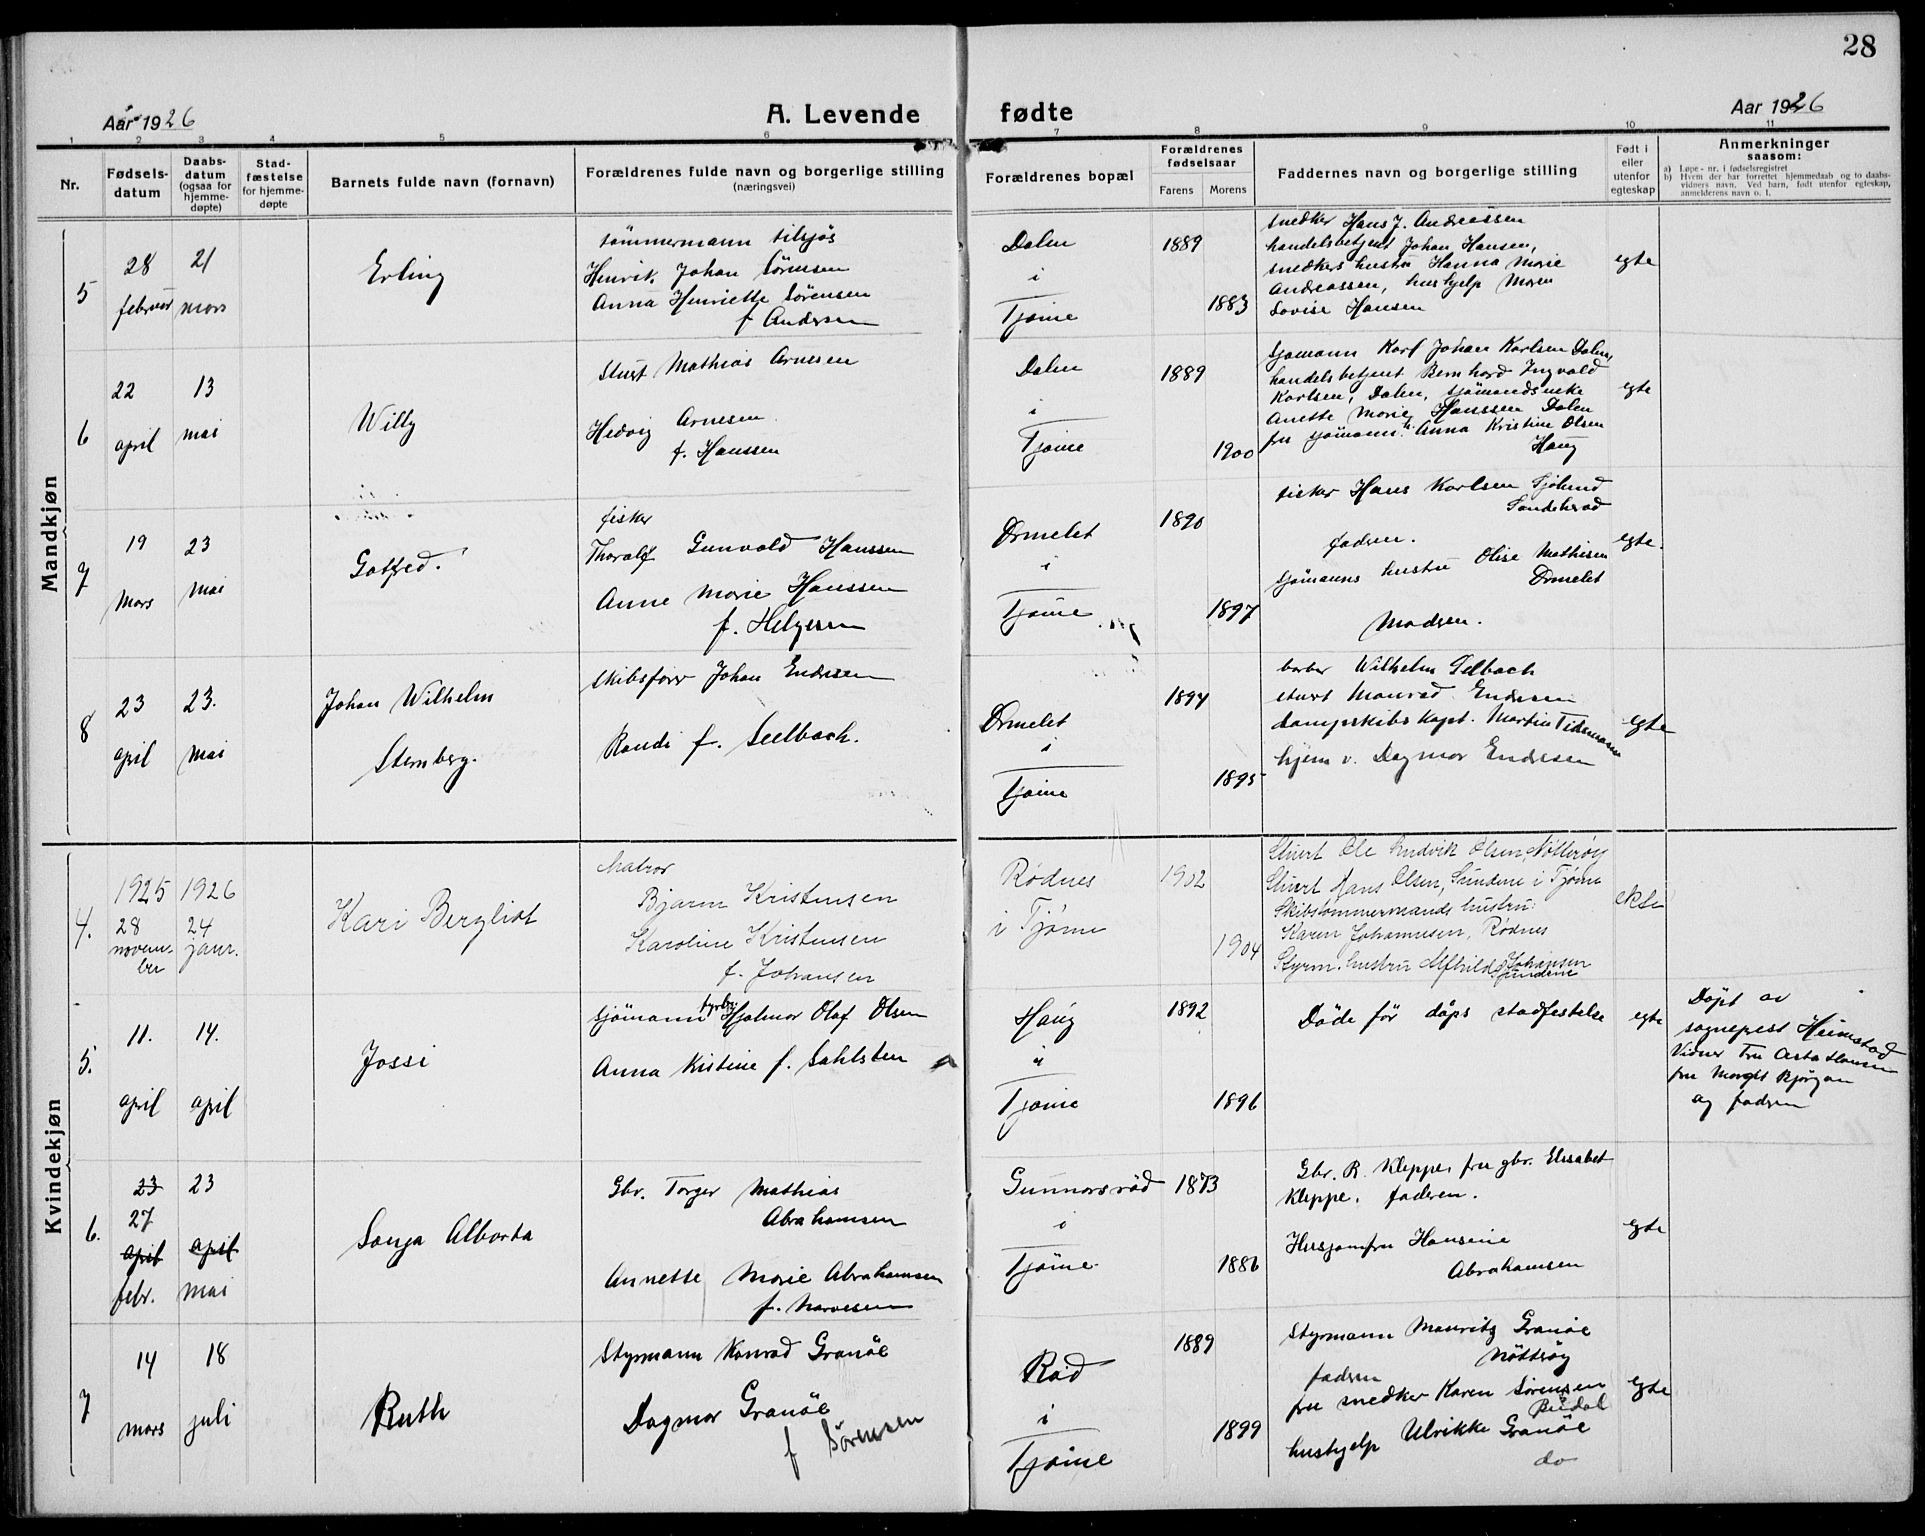 28
Aar 1926
A. Levende fødte
Aar 1926
1 2 3 4 5 6 7 8 9 10 11
Nr.
Fødsels-
datum
Daabs-
datum
(ogsaa for
hjemme-
døpte)
Stad-
fæstelse
for hjemme-
døpte
Barnets fulde navn (fornavn)
Forældrenes fulde navn og borgerlige stilling
(næringsvei)
Forældrenes bopæl
Forældrenes
fødselsaar
Farens
Morens
Faddernes navn og borgerlige stilling
Født i
eller
utenfor
egteskap
Anmerkninger
saasom:
a) Løpe-nr. i fødselsregistret
b) Hvem der har forrettet hjemmedaab og to daabs-
vidners navn. Ved barn, født utenfor egteskap,
anmelderens navn o. l.
Mandkjøn
5
28
februar
21
mars
Erling
tømmermann tilsjøs
Henrik Johan Sørensen
Anna Henriette Sørensen
f Andersen
Dalen
i
Tjøme
1889
1883
snedker Hans J. Andreassen
handelsbetjent Johan Hansen,
snedkers hustru Hanna Marie
Andreassen, hushjelp Maren
Lovise Hansen
egte
6
22
april
13
mai
Willy
Stuert Mathias Arnesen
Hedvig Arnesen
f. Hanssen
Dalen
i
Tjøme
1889
1900
Sjømann Karl Johan Karlsen Dalen,
handelsbetjent Bernhard Ingvald
Karlsen, Dalen, sjømandsenke
Anette Marie Hanssen Dalen
fru sjømann. Anna Kristine Olsen
Haug
egte
7
19
mars
23
mai
Gotfred.
fisker
Thoralf Gunvald Hanssen
Anne Marie Hanssen
f. Helgesen
Ormelet
i
Tjøme
1890
1897
fisker Hans Karlsen Sjølund
Sandeherad
faderen.
sjømanns hustru Olise Mathisen
Ormelet
Moderen.
egte.
8
23
april
23.
mai
Johan Wilhelm
Sternberg.
skibsfører Johan Endresen
Randi f. Seelbach.
Ormelet
i
Tjøme
1894
1895
barber Wilhelm Selbach
stuert Monrad Endresen
dampskibs kapt. Martin Tidemann
hjem v. Dagmar Endresen
egte
Kvindekjøn
4.
1925
28
novem-
ber
1926
24
janr.
Kari Bergliot
Matros
Bjarne Kristensen
Karoline Kristensen
f. Johansen
Rødnes
i Tjøme
1902
1904
Stuert Ole Ludvik Olsen, Nøtterøy
Stuert Hans Olsen, Sundene i Tjøme
Skibstømmermands hustru:
Karen Johannesen, Rødnes
Styrm. hustru Alfhild Johansen
Sundene
ekte
5.
11.
april
14.
april
Jossi
sjømann fyrbø. Hjalmar Olaf Olsen
Anna Kristine f. Sahlsten
Haug
i
Tjøme
1892
1896
Døde før dåps stadfestelse
egte
Døpt av
sogneprest Heimstad
Vidner Fru Asta Hansen
fru Margit Bjørgan
og faderen
6.
23
27
april
febr.
23
april
mai
Sonja Alborta
Gbr. Torger Mathias
Abrahamsen
Annette Marie Abrahamsen
f. Narvesen
Gunnarsrød
i
Tjøme
1873
1886
Gbr. R. Kleppe, fru gbr. Elisabet
Kleppe, faderen.
Husjomfru Hansine
Abrahamsen
egte
7
14
mars
18
juli
Ruth
Styrmann Konrad Granøe
Dagmar Granøe
f Sørensen
Rød
i
Tjøme
1889
1899
Styrmann Mauritz Granøe
Nøtterøy
faderen
fru snedker Karen Sørensen
Budal
hushjelp Ulrikke Granøe
do
egte